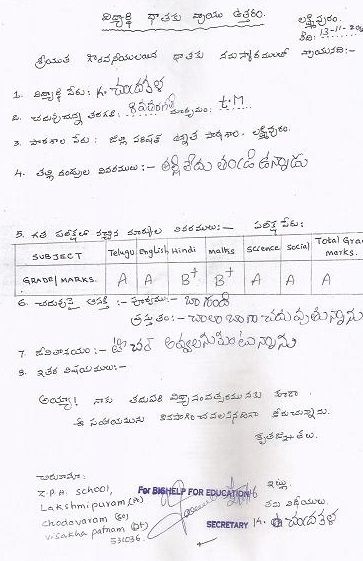 విద్యార్థి దాతకు వ్రాయు ఉత్తరం.
లక్ష్మీపురం.
తేది: 13-11-20
శ్రీయుత గౌరవనీయులయిన దాతకు నమస్కారములతో వ్రాయునది:-
1. విద్యార్థి పేరు: K. చంద్రకళ
2. చదువుచున్న తరగతి: 8వతరగతి మాధ్యమం: t.M
3. పాఠశాల పేరు: జిల్లా పరిషత్ ఉన్నత పాఠశాల. లక్ష్మీపురం.
4. తల్లి తండ్రుల వివరములు:- తల్లి లేదు తండ్రి ఉన్నాడు
5. గత పరీక్షలో వచ్చిన మార్కుల వివరములు:- పరీక్ష పేరు:
SUBJECT Telugu English Hindi maths Science Social Total Gra marks.
GRADE/MARKS. A A B+ B+ A A A
6. చదువుపై ఆసక్తి :- పూర్వము:- బాగుంది
ప్రస్తుతం:- చాలా బాగా చదువుతున్నాను
7. జీవితాశయం:- టీచర్ అవ్వాలనుకుంటున్నాను
8. ఇతర విషయములు:-
అయ్యా! నాకు తదుపరి విద్యాసంవత్సరమునకు కూడా
ఈ సహాయమును కొనసాగించవలసినదిగా కోరుచున్నాను.
కృతజ్ఞతలు.
చిరునామా:
Z.P.H. SCHOOL,
Lakshmipuram (Po)
chodavaram (Mo)
visakha patnam (Dt)
531036.
For BIGHELP FOR EDUCATION
SECRETARY
ఇట్లు
తమ విధేయులు.
K. చంద్రకళ